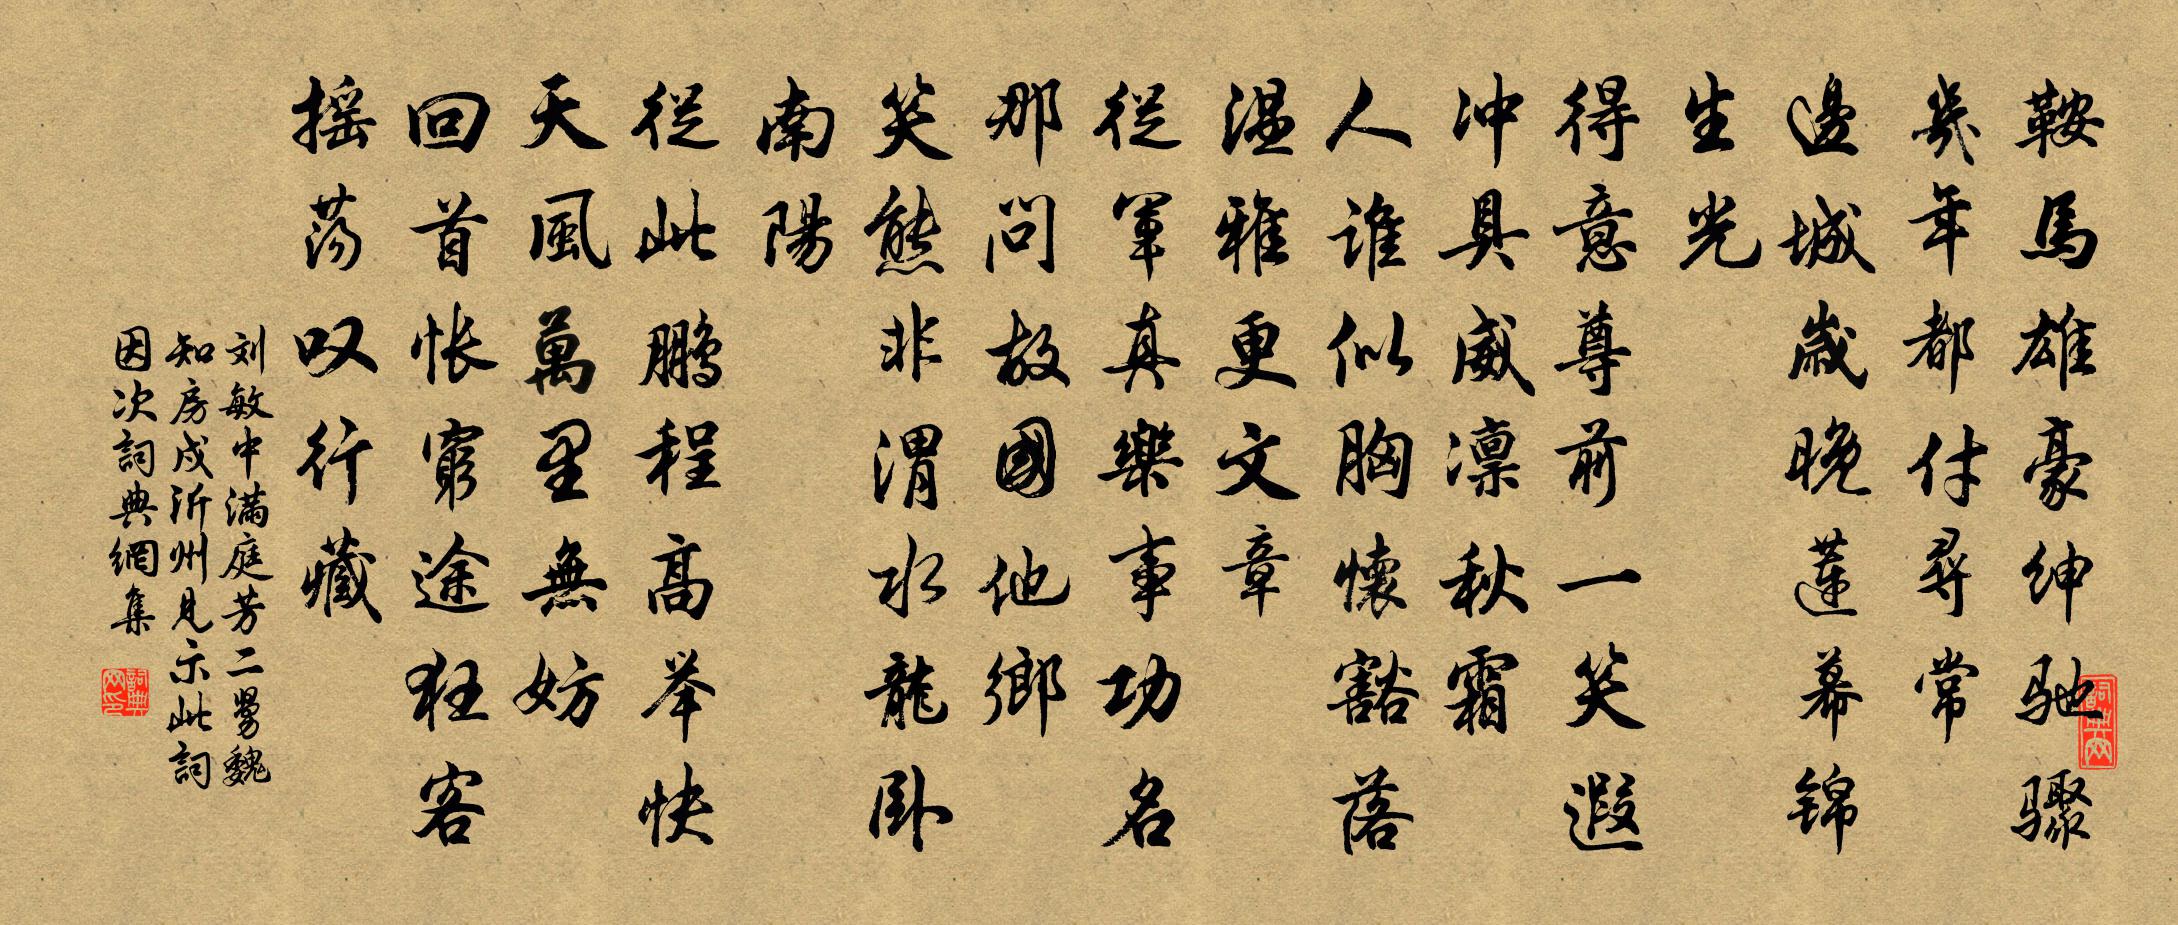 鞍馬雄豪紳驰骤
幾年都付尋常
邊城歲晚蓮幕锦
生光
得意尊前一笑遐
冲具威凛秋霜
人谁似胸懷豁落
温雅更文章
從軍真樂事功名
那問故國他鄉
笑熊非渭水龍卧
南陽
從此鹏程高举快
天風萬里無妨
回首怅窮途狂客
摇荡叹行藏
刘敏中满庭芳二舅魏
知房戍沂州見示此詞
因次詞典網集
詞典网
詞典网印